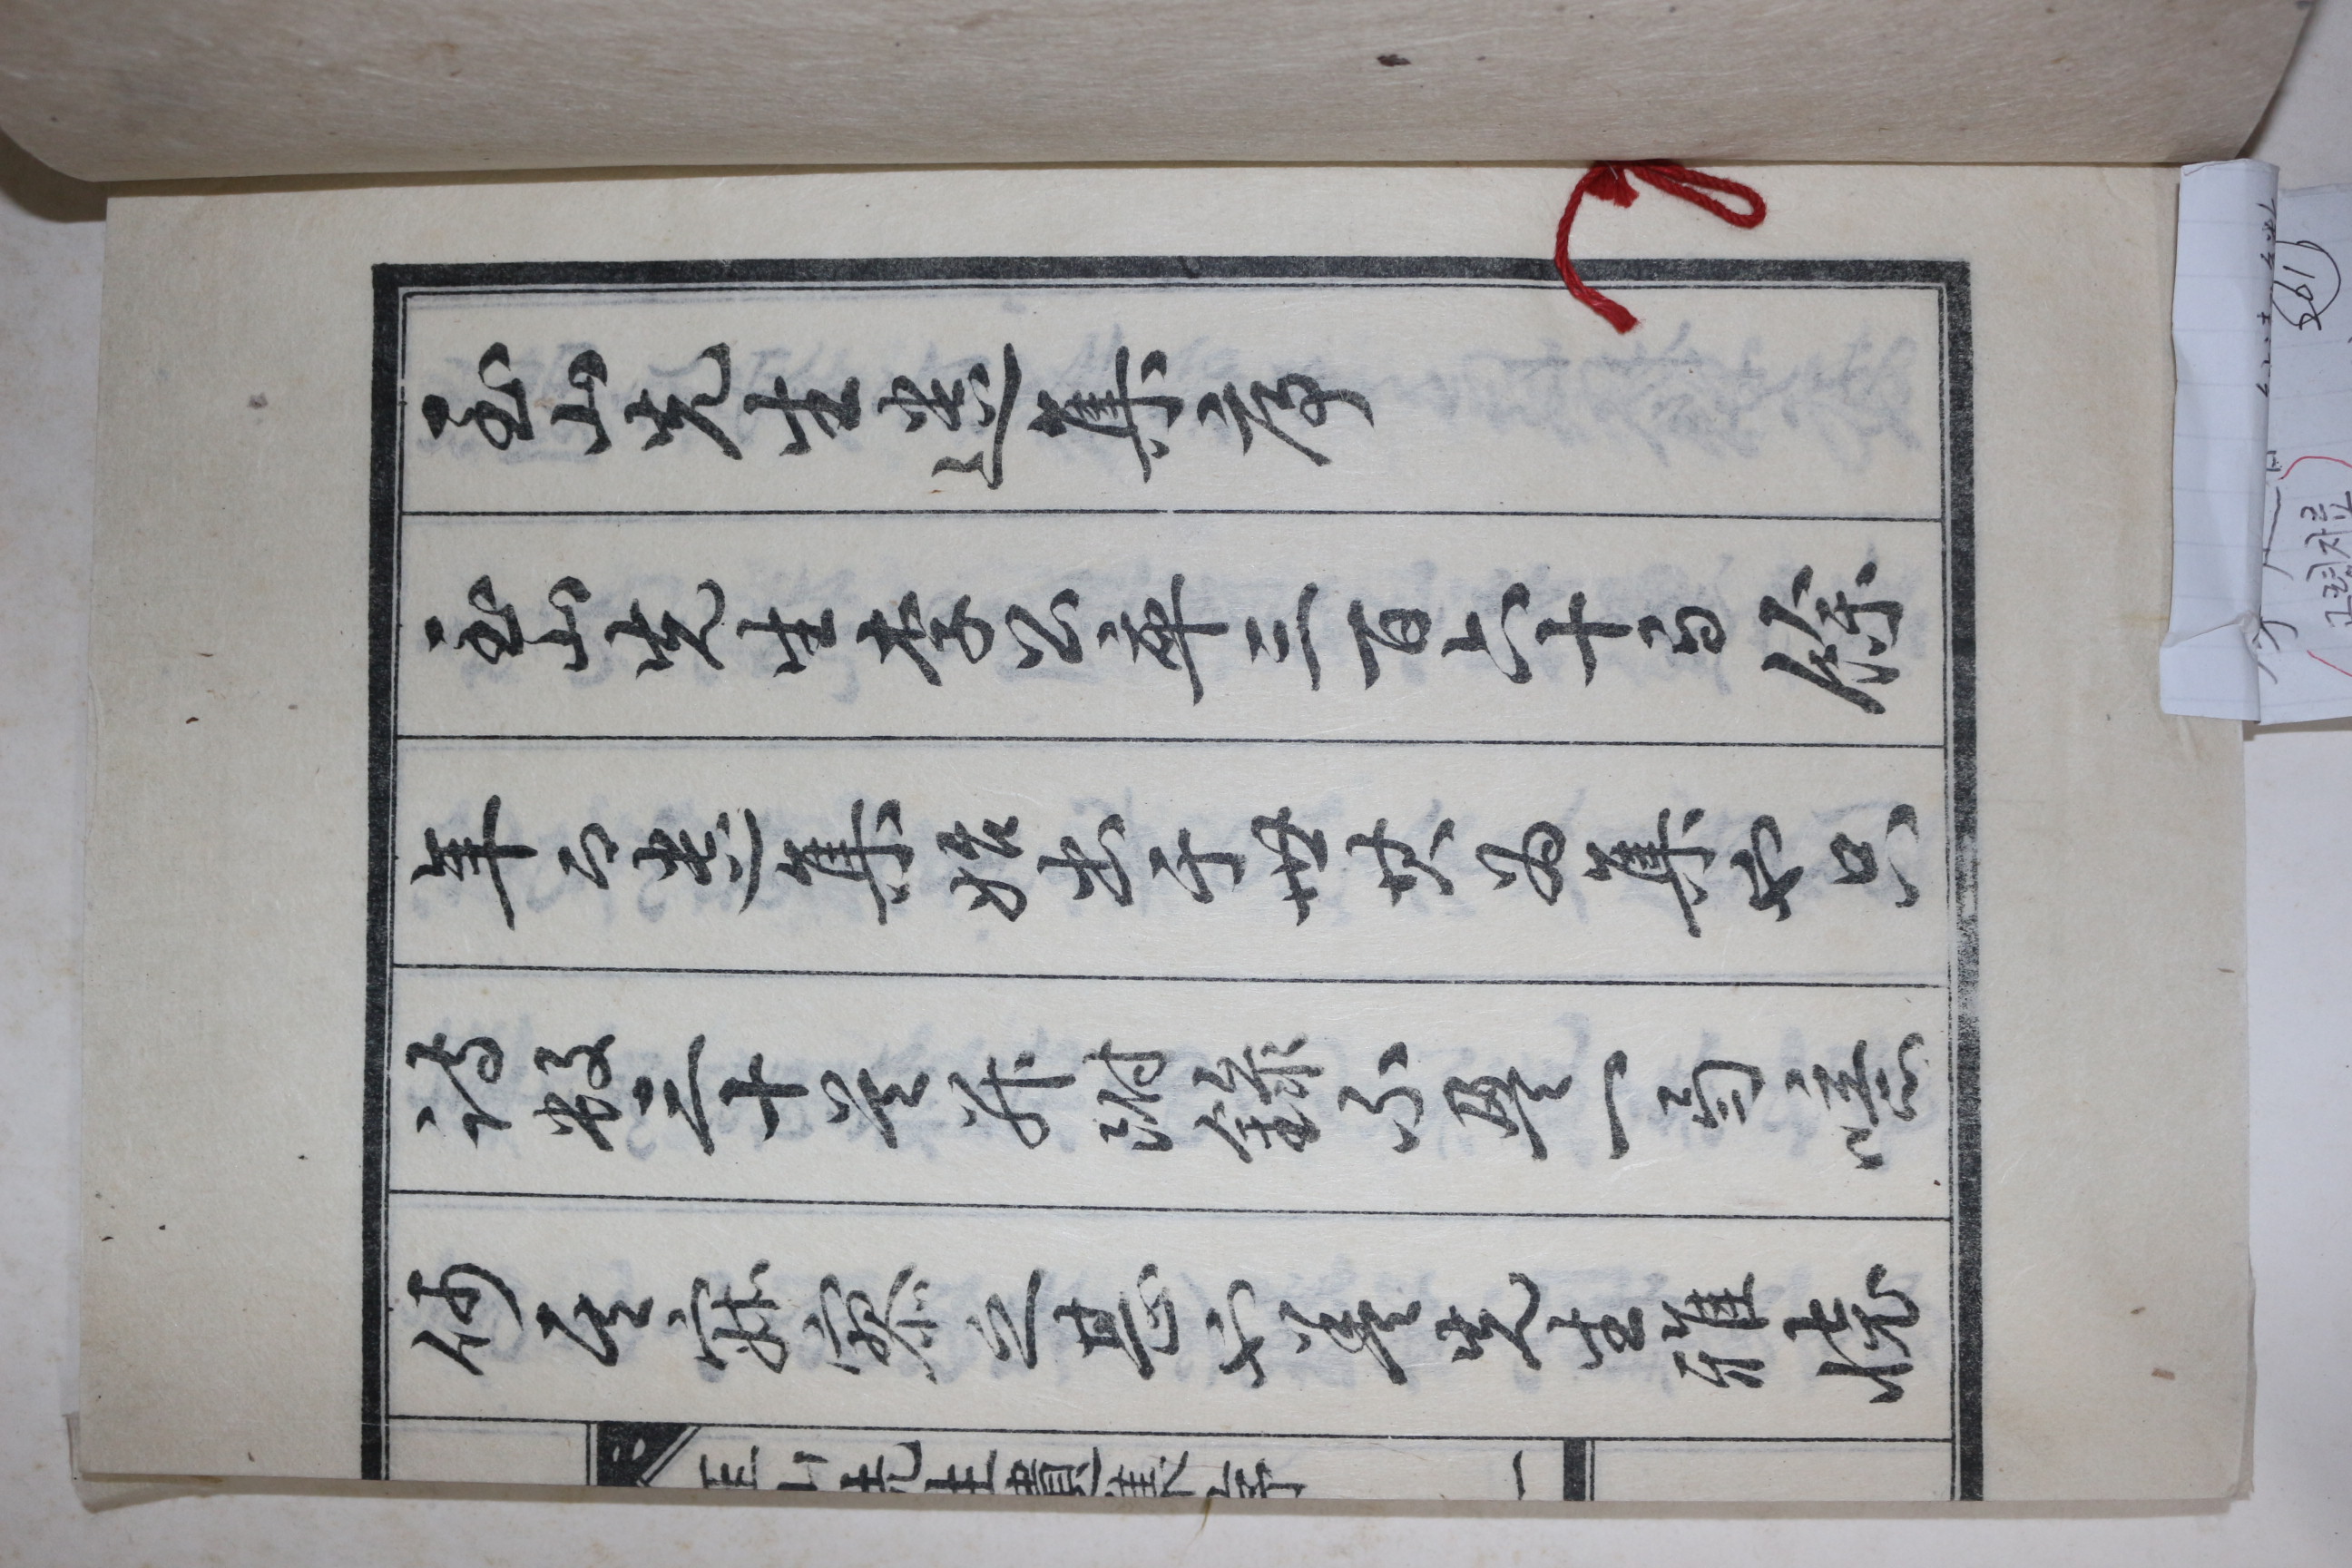 玉山先生遺集序
玉山先生李公卒三百六十有餘
年而遺集始出于世其為集也只
詩數三十首并附錄不盈一噫
何其寂寥之甚也蓋先生雅懷
玉山先生遺集序 一
고령자료